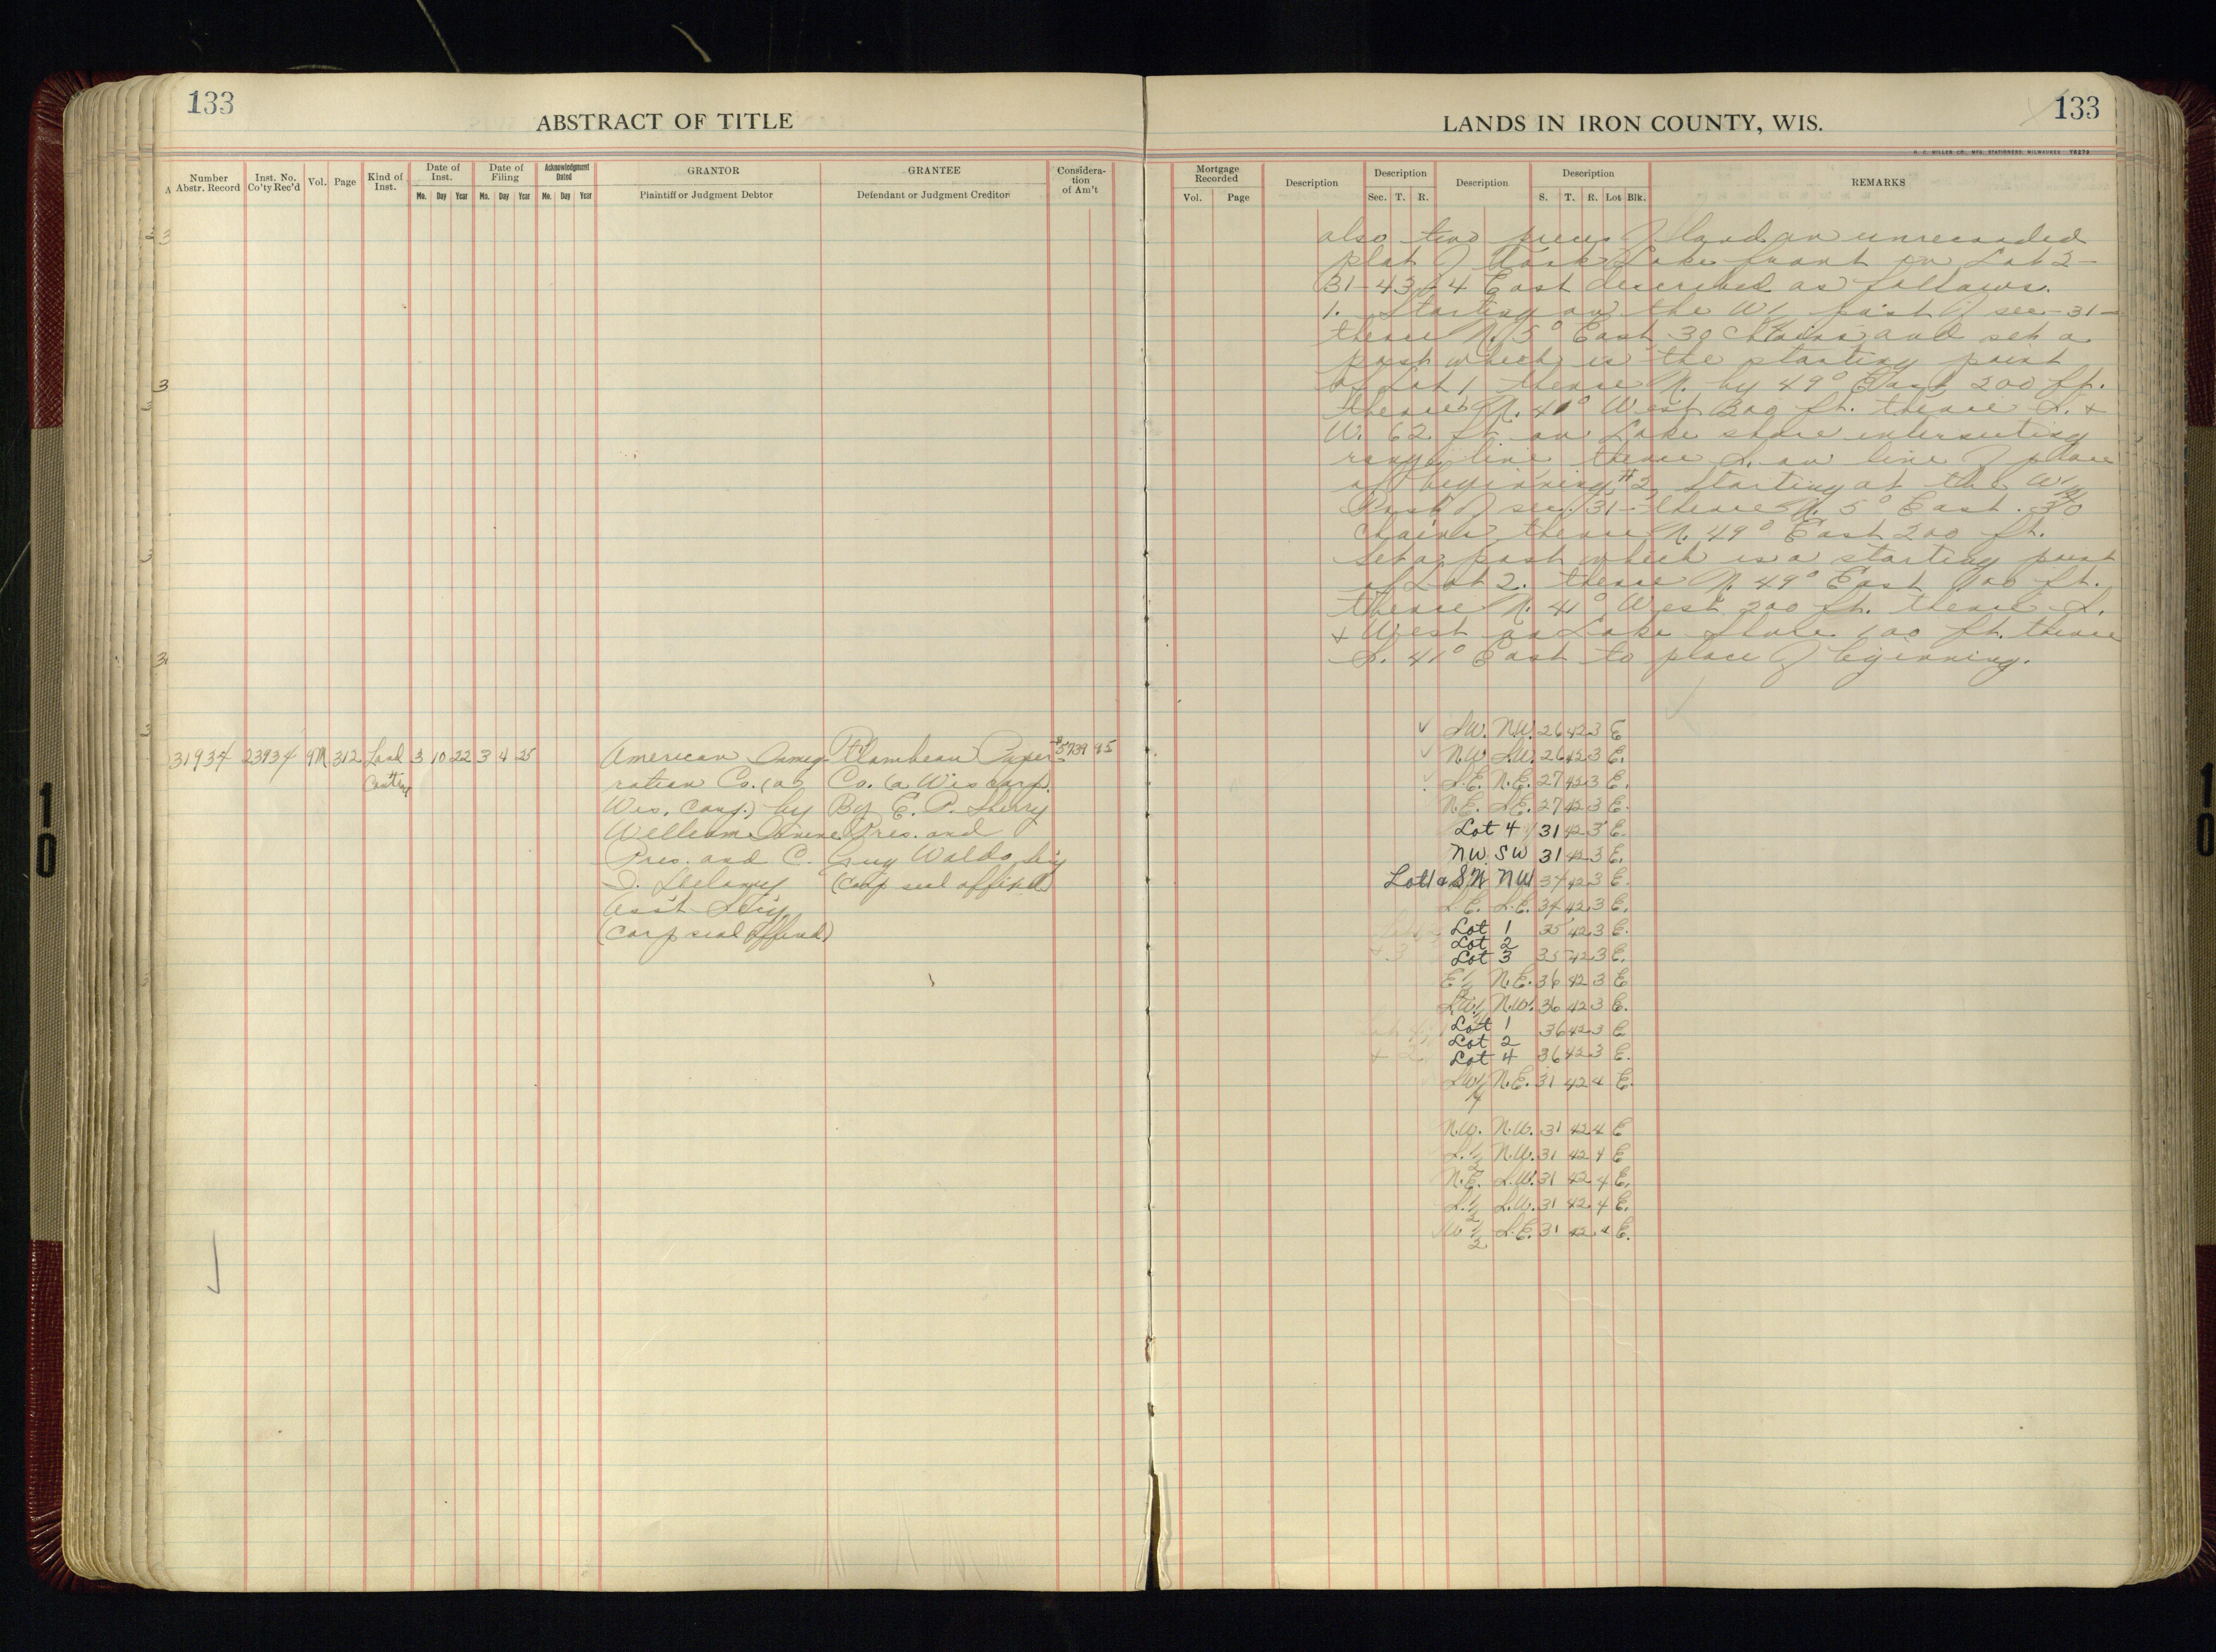 133
ABSTRACT OF TITLE
Number Abstr. Record
Inst. No. Co'ty Rec'd
Vol.
Page
Kind of Inst.
Date of Inst.
Date of Filing
Acknowledgment Dated
GRANTOR
GRANTEE
Consideration of Am't
Mo. Day Year Mo. Day Year Mo. Day Year
Plaintiff or Judgment Debtor
Defendant or Judgment Creditor
31934 23934 9M 312 Land 3 10 22 3 4 25
American Immig- Flambeau Paper $5739 95
ration Co. (a Co. (a Wis corp.
Wis. Corp.) by By E. P. Sherry
William Pres. and
Pres. and C. Guy Waldo Sec'y
(Corp seal affixed)
Ass't Sec'y
(Corp seal affixed)
10
133
LANDS IN IRON COUNTY, WIS.
H. C. MILLER CO., MFG. STATIONERS, MILWAUKEE
Mortgage Recorded
Description
Description
Description
Description
REMARKS
Vol. Page
Sec. T. R.
S. T. R. Lot Blk.
also two pieces of land on unrecorded
plat of Lake front on Lot 2-
31-43-4 East described as follows.
1. Starting on the W 1/4 post of sec-31-
thence N. 5° East 30 chains and set a
post which is the starting point
of Lot 1 thence N. by 49° East 200 ft.
thence N. 41° West 200 ft. thence S. +
W. 62 ft. on Lake shore intersecting
range line thence S. on line of place
of beginning #2 Starting at the W 1/4
Post of sec. 31- thence N. 5° East. 30
chains thence N. 49° East 200 ft.
Set a post which is a starting point
of Lot 2. thence N. 49° East 100 ft.
thence N. 41° West 200 ft. thence S.
+ West on Lake Shore 100 ft. thence
S. 41° East to place of beginning.
SW. N.W. 26 42 3 E
N.W. S.W. 26 42 3 E.
S.E. N.E. 27 42 3 E.
N.E. S.E. 27 42 3 E.
Lot 4 31 42 3 E.
NW SW 31 42 3 E.
Lot 1 & NW 34 42 3 E.
S.E. S.E. 34 42 3 E.
Lot 1 35 42 3 E.
Lot 2
Lot 3 35 42 3 E.
E 1/2 N.E. 36 42 3 E
SW 1/4 N.W. 36 42 3 E.
Lot 1 36 42 3 E
Lot 2
Lot 4 36 42 3 E.
SW 1/4 N.E. 31 42 4 E.
N.W. N.W. 31 42 4 E
S. 1/2 N.W. 31 42 4 E
N.E. S.W. 31 42 4 E.
S. 1/2 S.W. 31 42 4 E.
W 1/2 S.E. 31 42 4 E.
10